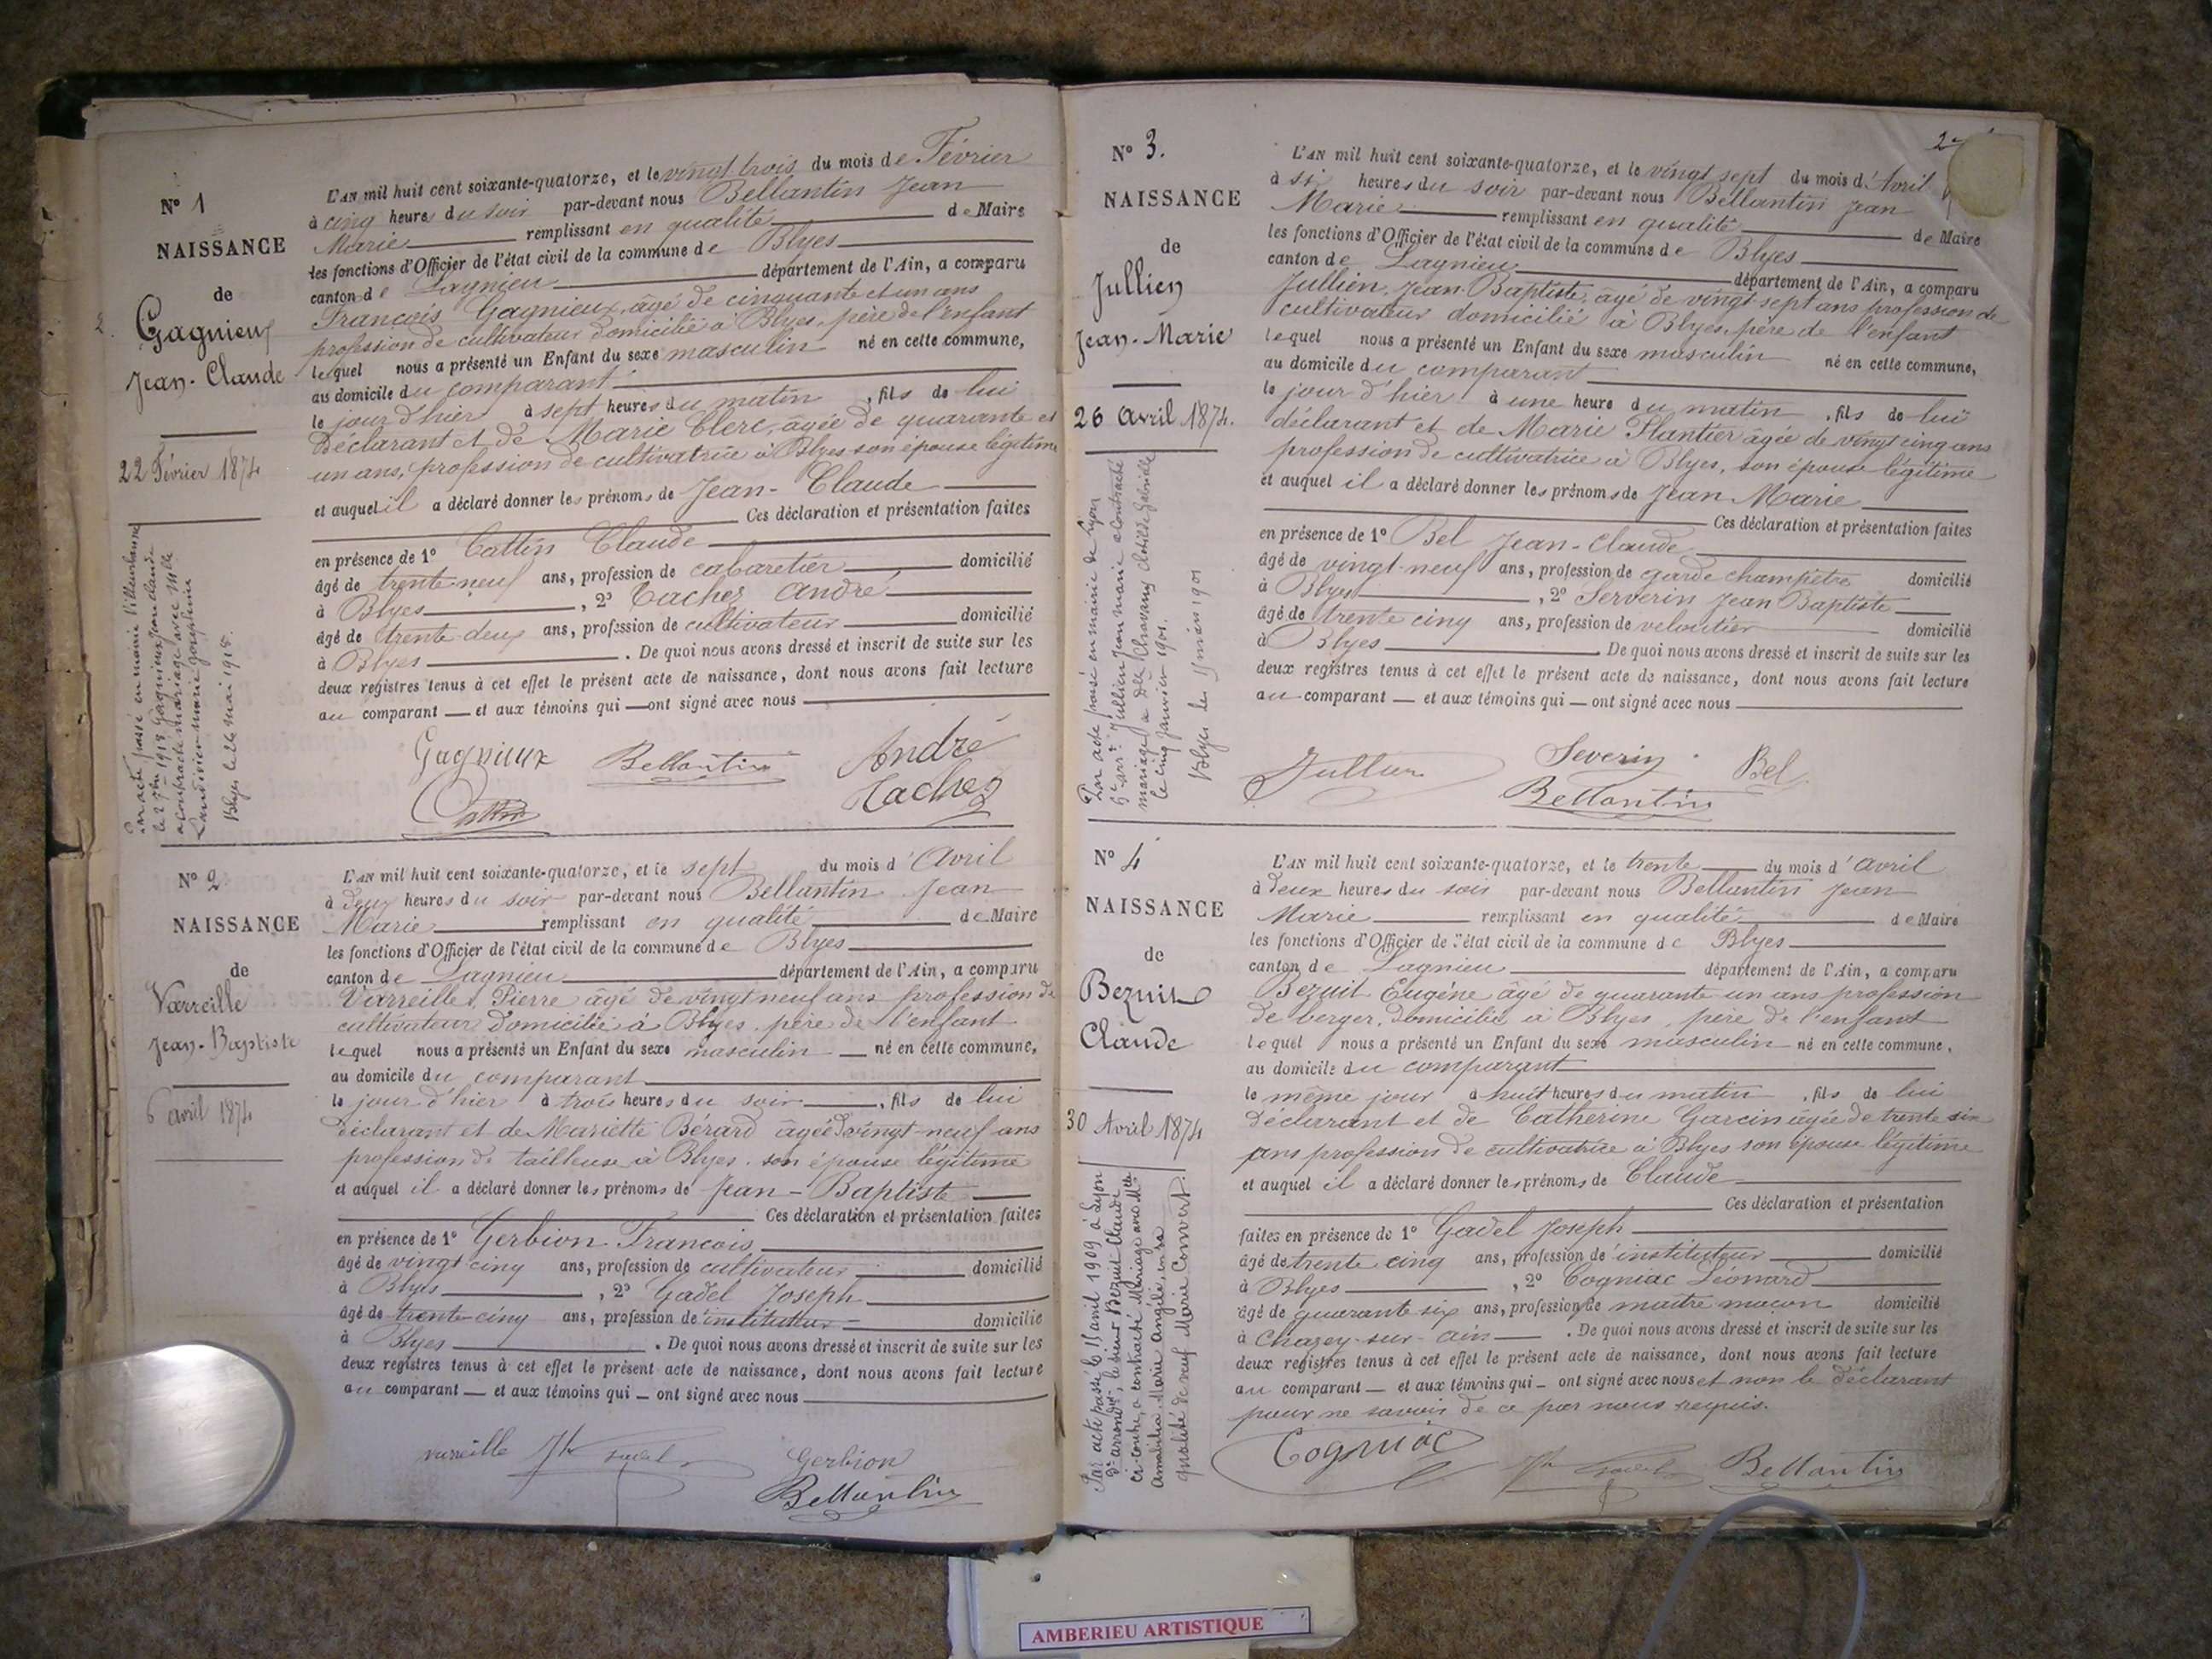 Nº 1
NAISSANCE
de
Gagnieux
Jean-Claude
22 Février 1874
L'AN mil huit cent soixante-quatorze, et le vingt trois du mois de Février
à cinq heures du soir par-devant nous Bellantin Jean
Marie remplissant en qualité de Maire
les fonctions d'Officier de l'état civil de la commune de Blyes
canton de Lagnieu département de l'Ain, a comparu
François Gagnieux, âgé de cinquante et un ans
profession de cultivateur domicilié à Blyes, père de l'enfant
lequel nous a présenté un Enfant du sexe masculin né en cette commune,
au domicile du comparant
le jour d'hier à sept heures du matin, fils de lui
Déclarant et de Marie Clerc, âgée de quarante et
un ans, profession de cultivatrice à Blyes son épouse légitime
et auquel il a déclaré donner les prénoms de Jean-Claude
Ces déclaration et présentation faites
en présence de 1º Cattin Claude
âgé de trente-neuf ans, profession de cabaretier domicilié
à Blyes, 2º Tachez André
âgé de trente-deux ans, profession de cultivateur domicilié
à Blyes. De quoi nous avons dressé et inscrit de suite sur les
deux registres tenus à cet effet le présent acte de naissance, dont nous avons fait lecture
au comparant — et aux témoins qui — ont signé avec nous
Gagnieux Bellantin André
Tachez
acte passé en mairie Villeurbanne
le 1918 Gagnieux Jean Claude
a contracté mariage avec Mlle
Marie Joséphine
Blyes le 26 mai 1918
Nº 2
NAISSANCE
de
Varreille
Jean-Baptiste
6 avril 1874
L'AN mil huit cent soixante-quatorze, et le sept du mois d'Avril
à deux heures du soir par-devant nous Bellantin Jean
Marie remplissant en qualité de Maire
les fonctions d'Officier de l'état civil de la commune de Blyes
canton de Lagnieu département de l'Ain, a comparu
Varreille, Pierre âgé de vingt neuf ans profession de
cultivateur domicilié à Blyes, père de l'enfant
lequel nous a présenté un Enfant du sexe masculin — né en cette commune,
au domicile du comparant
le jour d'hier à trois heures du soir, fils de lui
déclarant et de Mariette Bérard âgée de vingt-neuf ans
profession de tailleuse à Blyes, son épouse légitime
et auquel il a déclaré donner les prénoms de Jean-Baptiste
Ces déclaration et présentation faites
en présence de 1º Gerbion François
âgé de vingt cinq ans, profession de cultivateur domicilié
à Blyes, 2º Gadel Joseph
âgé de trente-cinq ans, profession d'instituteur domicilié
à Blyes. De quoi nous avons dressé et inscrit de suite sur les
deux registres tenus à cet effet le présent acte de naissance, dont nous avons fait lecture
au comparant — et aux témoins qui — ont signé avec nous
varreille Jh Gadel Gerbion
Bellantin
Nº 3.
NAISSANCE
de
Jullien
Jean-Marie
26 avril 1874.
L'AN mil huit cent soixante-quatorze, et le vingt sept du mois d'Avril
à six heures du soir par-devant nous Bellantin Jean
Marie remplissant en qualité de Maire
les fonctions d'Officier de l'état civil de la commune de Blyes
canton de Lagnieu département de l'Ain, a comparu
Jullien, Jean-Baptiste, âgé de vingt-sept ans profession de
cultivateur domicilié à Blyes, père de l'enfant
lequel nous a présenté un Enfant du sexe masculin né en cette commune,
au domicile du comparant
le jour d'hier à une heure du matin, fils de lui
déclarant et de Marie Plantier âgée de vingt cinq ans
profession de cultivatrice à Blyes, son épouse légitime
et auquel il a déclaré donner les prénoms de Jean Marie
Ces déclaration et présentation faites
en présence de 1º Bel Jean-Claude
âgé de vingt-neuf ans, profession de garde champêtre domicilié
à Blyes, 2º Serverin Jean Baptiste
âgé de trente cinq ans, profession de veloutier domicilié
à Blyes. De quoi nous avons dressé et inscrit de suite sur les
deux registres tenus à cet effet le présent acte de naissance, dont nous avons fait lecture
au comparant — et aux témoins qui — ont signé avec nous
Jullien Severin Bel
Bellantin
Par acte passé en mairie de Lyon
Jullien Jean Marie a contracté
mariage à Dlle Clotilde Gabrielle
le cinq janvier 1901.
Blyes le 1901
Nº 4
NAISSANCE
de
Bezuit
Claude
30 Avril 1874
L'AN mil huit cent soixante-quatorze, et le trente du mois d'avril
à deux heures du soir par-devant nous Bellantin Jean
Marie remplissant en qualité de Maire
les fonctions d'Officier de l'état civil de la commune de Blyes
canton de Lagnieu département de l'Ain, a comparu
Bezuit Eugène âgé de quarante un ans profession
de berger, domicilié à Blyes, père de l'enfant
lequel nous a présenté un Enfant du sexe masculin né en cette commune,
au domicile du comparant
le même jour à huit heures du matin, fils de lui
déclarant et de Catherine Garcin âgée de trente six
ans profession de cultivatrice à Blyes son épouse légitime
et auquel il a déclaré donner les prénoms de Claude
Ces déclaration et présentation
faites en présence de 1º Gadel Joseph
âgé de trente cinq ans, profession d'instituteur domicilié
à Blyes, 2º Cogniac Léonard
âgé de quarante six ans, profession de maître maçon domicilié
à Chazey-sur-ain. De quoi nous avons dressé et inscrit de suite sur les
deux registres tenus à cet effet le présent acte de naissance, dont nous avons fait lecture
au comparant — et aux témoins qui — ont signé avec nous et non le déclarant
pour ne savoir de ce par nous requis.
Cogniac Jh Gadel Bellantin
Par acte passé le 15 avril 1909 à Lyon
3e arrondt, le sieur Bezuit Claude
ci-contre, a contracté Mariage avec Mlle
Marie Angèle, en sa
qualité de veuf Marie Convert.
AMBERIEU ARTISTIQUE